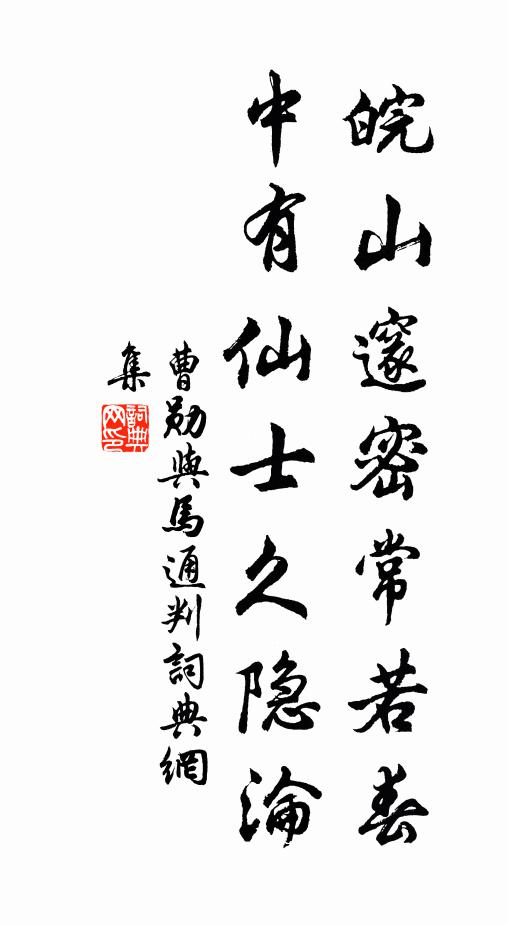 皖山邃密常若春
中有仙士久隐淪
曹勛與馬通判詞典網
集
詞典
网印